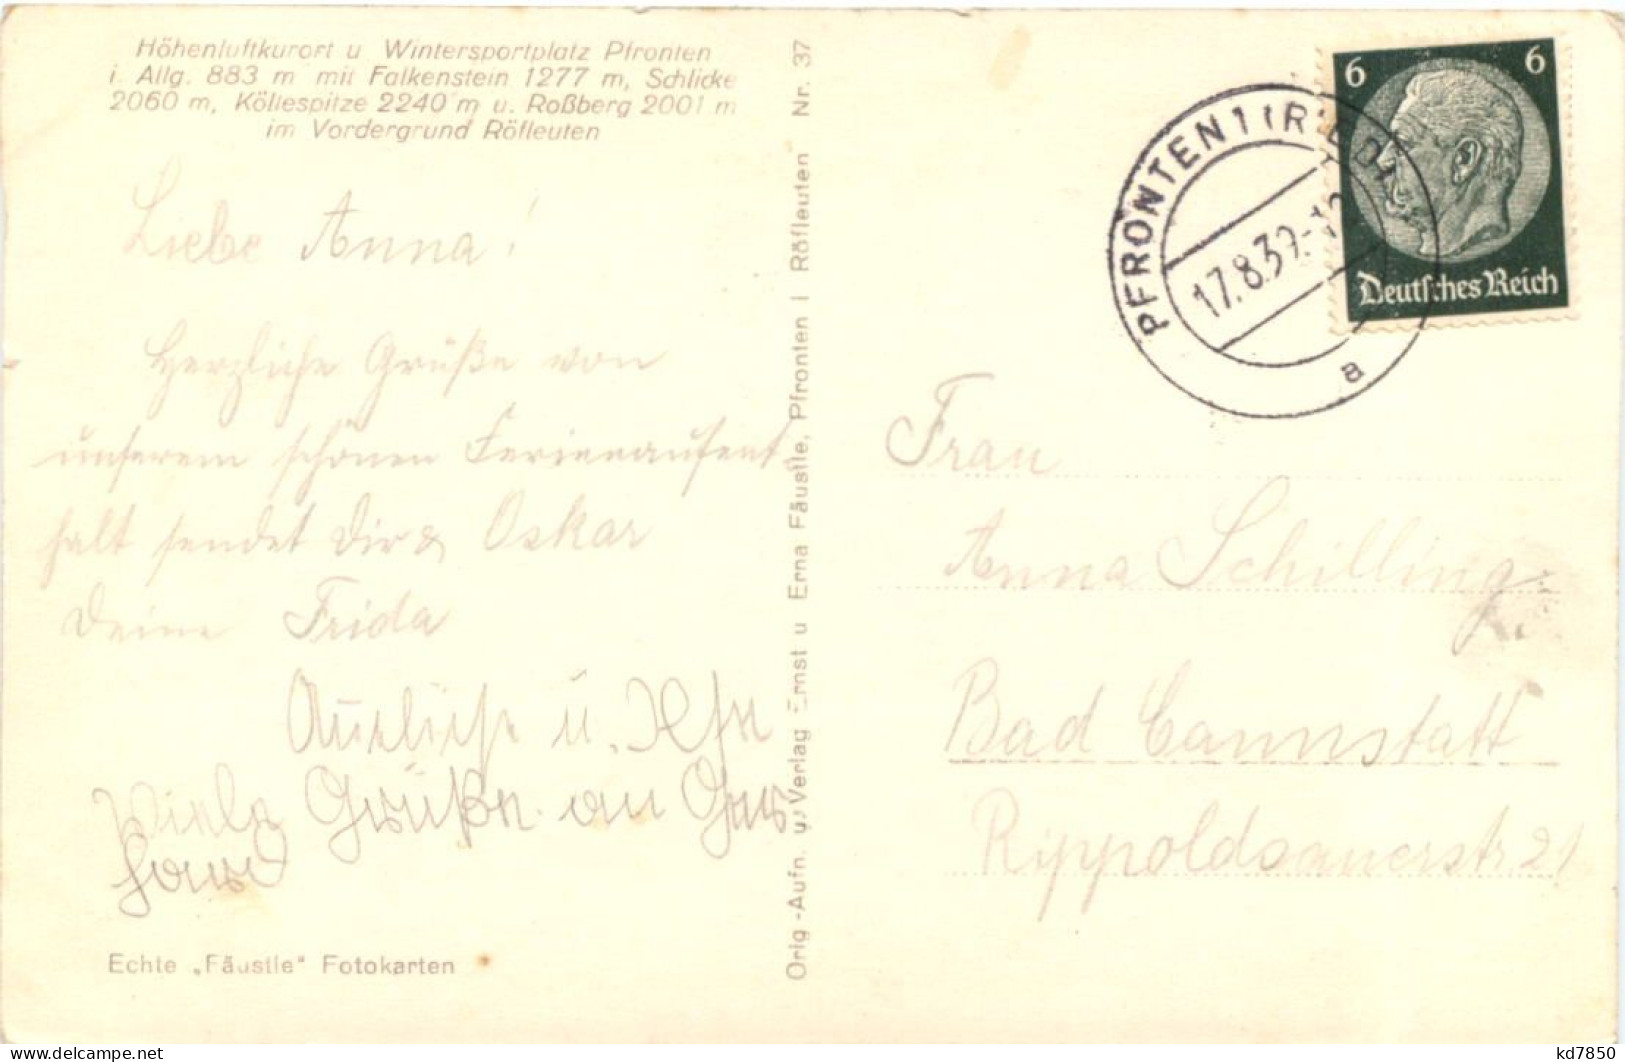 Höhenluftkurort u Wintersportplatz Pfronten
i. Allg. 883 m mit Falkenstein 1277 m, Schlicke
2060 m, Köllespitze 2240 m u. Roßberg 2001 m
im Vordergrund Röfleuten
Liebe Anna!
Herzliche Grüße von
unserem schönen Ferienaufent-
halt sendet Dir & Oskar
Deine Frida
u.
Viele Grüße an
Echte „Fäustle" Fotokarten
Orig.-Aufn. u. Verlag Ernst u Erna Fäustle, Pfronten I Röfleuten Nr. 37
PFRONTEN 1 (RIED)
17.8.39.-12
a
6 6
Deutsches Reich
Frau
Anna Schilling
Bad Cannstatt
Rippoldsauerstr 21
kd7850